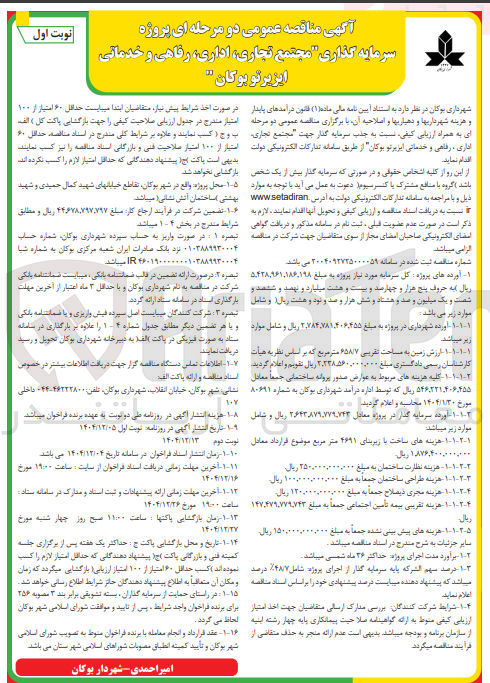 آگهی مناقصه عمومی دو مرحله ای پروژه
سرمایه گذاری "مجتمع تجاری، اداری، رفاهی و خدماتی
ایزیرتو بوکان"
نوبت اول
شهرداری بوکان در نظر دارد به استناد آیین نامه مالی ماده(۱) قانون درآمدهای پایدار
و هزینه شهرداریها و دهیاریها و اصلاحیه آن، با برگزاری مناقصه عمومی دو مرحله
ای به همراه ارزیابی کیفی، نسبت به جذب سرمایه گذار جهت "مجتمع تجاری،
اداری ، رفاهی و خدماتی ایزیرتو بوکان" از طریق سامانه تدارکات الکترونیکی دولت
اقدام نماید.
از این رو از کلیه اشخاص حقوقی و در صورتی که سرمایه گذار بیش از یک شخص
باشد )گروه با منافع مشترک یا کنسرسیوم( دعوت به عمل می آید با توجه به موارد
ذیل و با مراجعه به سامانه تدارکات الکترونیکی دولت به آدرس www.setadiran.
ir نسبت به دریافت اسناد مناقصه و ارزیابی کیفی و تحویل آنها اقدام نمایند ، لازم به
ذکر است در صورت عدم عضویت قبلی ، ثبت نام در سامانه مذکور و دریافت گواهی
امضای الکترونیکی صاحبان امضای مجاز از سوی متقاضیان جهت شرکت در مناقصه
الزامی میباشد.
شماره مناقصه ثبت شده در سامانه ۲۰۰۴۰۹۲۷۳۵۰۰۰۰۵۹ می باشد.
۱- آورده های پروژه : کل سرمایه مورد نیاز پروژه به مبلغ ۵,۴۲۸,۹۶۱,۱۸۶,۱۹۸
ریال )به حروف پنج هزار و چهارصد و بیست و هشت میلیارد و نهصد و ششصد و
شصت و یک میلیون و صد و هشتاد و شش هزار و صد و نود و هشت ریال( و شامل
موارد زیر می باشد :
۱-۱-۱- آورده شهرداری در پروژه به مبلغ ۲,۷۸۴,۷۸۱,۴۰۶,۴۵۵ ریال و شامل موارد
زیر میباشد.
۱-۱-۱-۱- ارزش زمین به مساحت تقریبی ۶۵۸/۷ مترمربع که بر اساس نظریه هیأت
کارشناسان رسمی دادگستری مبلغ ۲,۲۳۸,۵۶۰,۰۰۰,۰۰۰ ریال تقویم و اعلام گردید.
۲-۱-۱-۱- کلیه هزینه های مربوط به عوارض صدور پروانه ساختمانی جمعاً معادل
۵۴۶,۲۲۱,۴۰۶,۴۵۵ ریال که توسط اداره درآمد شهرداری بوکان به شماره ۸۰۶۹۱
مورخ ۱۴۰۴/۱/۳۰ محاسبه و اعلام گردید.
۱-۱-۳- آورده سرمایه گذار در پروژه معادل ۲,۶۴۳,۸۷۹,۷۷۹,۷۴۳ ریال و شامل
موارد زیر میباشد:
۱-۲-۱-۱- هزینه های ساخت با زیربنای ۴۶۹۱ متر مربع موضوع قرارداد معادل
۱,۸۷۶,۴۰۰,۰۰۰,۰۰۰ ریال.
۱-۱-۲-۲- هزینه نظارت ساختمان به مبلغ ۲۵۰,۰۰۰,۰۰۰,۰۰۰ ریال.
۱-۱-۲-۳- هزینه طراحی ساختمان جمعاً به مبلغ ۱۰۰,۰۰۰,۰۰۰,۰۰۰ ریال.
۱-۱-۲-۴- هزینه مجری ذیصلاح جمعاً به مبلغ ۱۲۰,۰۰۰,۰۰۰,۰۰۰ ریال.
۱-۱-۲-۴- هزینه تقریبی بیمه تأمین اجتماعی جمعاً به مبلغ ۱۴۷,۴۷۹,۷۷۹,۷۴۳
ریال.
۱-۱-۲-۵- هزینه های پیش بینی نشده جمعاً به مبلغ ۱۵۰,۰۰۰,۰۰۰,۰۰۰ ریال.
سایر جزئیات به شرح مندرج در اسناد مناقصه میباشد .
۱-۲- برآورد مدت اجرای پروژه: حداکثر ۳۶ ماه شمسی میباشد .
۱-۳- درصد سهم الشرکه پایه سرمایه گذار از اجرای پروژه: شامل ۴۸/۷٪ درصد
میباشد که پیشنهاد دهنده میبایست درصد پیشنهادی خود را بر اساس اسناد مناقصه
اعلام نماید.
۱-۴- شرایط شرکت کنندگان: بررسی مدارک ارسالی متقاضیان جهت اخذ امتیاز
ارزیابی کیفی منوط به ارائه گواهینامه صلاحیت پیمانکاری پایه چهار رشته ابنیه
از سازمان برنامه و بودجه میباشد.بدیهی است عدم ارائه منجر به حذف متقاضی از
فرآیند مناقصه میگردد.
در صورت اخذ شرایط پیش نیاز، متقاضیان ابتدا میبایست حداقل ۶۰ امتیاز از ۱۰۰
امتیاز مندرج در جدول ارزیابی صلاحیت کیفی را جهت بازگشایی پاکت کل )الف،
ب و ج ( کسب نمایند و علاوه بر شرایط کلی مندرج در اسناد مناقصه، حداقل ۶۰
امتیاز از ۱۰۰ امتیاز صلاحیت فنی و بازرگانی اسناد مناقصه را نیز کسب نمایند،
بدیهی است پاکت )ج( پیشنهاد دهندگانی که حداقل امتیاز لازم را کسب نکرده اند،
بازگشایی نخواهد شد.
۱-۵- محل پروژه: واقع در شهر بوکان، تقاطع خیابانهای شهید کمال حمیدی و شهید
بهشتی )ساختمان آتش نشانی( میباشد.
۱-۶- تضمین شرکت در فرآیند ارجاع کار: مبلغ ۴۴,۶۷۸,۷۹۷,۷۹۷ ریال و مطابق
شرایط مندرج در بخش ۴-۱ میباشد.
تبصره ۱ : در صورت واریز به حساب سپرده شهرداری بوکان، شماره حساب
۰۱۰۳۸۸۹۹۳۰۰۰۴ نزد بانک صادرات ایران شعبه مرکزی بوکان به شماره شبا
IR میباشد.
تبصره ۲: درصورت ارائه تضمین در قالب ضمانتنامه بانکی ، میبایست ضمانتنامه بانکی
شرکت در مناقصه به نام شهرداری بوکان و با حداقل ۳ ماه اعتبار از آخرین مهلت
بارگذاری اسناد در سامانه ستاد ارائه گردد.
تبصره ۳ : شرکت کنندگان میبایست اصل سپرده فیش واریزی و یا ضمانتنامه بانکی
و یا هر تضمین دیگر مطابق جدول شماره ۴-۱ را علاوه بر بارگذاری در سامانه
ستاد به صورت فیزیکی در پاکت )الف( به دبیرخانه شهرداری بوکان تحویل و رسید
دریافت نمایند.
۱-۷- اطلاعات تماس دستگاه مناقصه گزار جهت دریافت اطلاعات بیشتر در خصوص
اسناد مناقصه و ارائه پاکت الف:
نشانی: شهر بوکان، خیابان انقلاب، شهرداری بوکان، تلفن: ۰۴۴-۴۶۲۲۲۸۰۰ داخلی
۱۰۷
۱-۸- هزینه انتشار آگهی در روزنامه طی دو نوبت به عهده برنده فراخوان میباشد.
۱-۹- تاریخ انتشار آگهی در روزنامه: نوبت اول ۱۴۰۴/۱۲/۰۵
نوبت دوم ۱۴۰۴/۱۲/۱۳
۱-۱۰- زمان انتشار اسناد فراخوان در سامانه تاریخ ۱۴۰۴/۱۲/۰۴ می باشد.
۱-۱۱- آخرین مهلت زمانی دریافت اسناد فراخوان از سایت : ساعت ۱۹:۰۰ مورخ
۱۴۰۴/۱۲/۱۶
۱-۱۲- آخرین مهلت زمانی ارائه پیشنهادات و ثبت اسناد و مدارک در سامانه ستاد :
ساعت ۱۹:۰۰ مورخ ۱۴۰۴/۱۲/۲۶
۱-۱۳- زمان بازگشایی پاکتها : ساعت ۱۱:۰۰ صبح روز چهار شنبه مورخ
۱۴۰۴/۱۲/۲۷
۱-۱۴- تاریخ و محل بازگشایی پاکت ج : حداکثر یک هفته پس از برگزاری جلسه
کمیته فنی و بازرگانی پاکت )ج( پیشنهاد دهندگانی که حداقل امتیاز لازم را کسب
نموده اند )کسب حداقل ۶۰ امتیاز از ۱۰۰ امتیاز ارزیابی( بازگشایی میگردد که زمان
و مکان آن متعاقباً به اطلاع پیشنهاد دهندگان حائز شرایط اطلاع رسانی خواهد شد.
۱-۱۵- : در راستای حمایت از سرمایه گذاران ، بسته تشویقی برابر بند ۳ مصوبه ۲۵۶
برای برنده فراخوان واجد شرایط ، پس از تایید و موافقت شورای اسلامی شهر بوکان
لحاظ می گردد .
۱-۱۶- عقد قرارداد و انجام معامله با برنده فراخوان منوط به تصویب شورای اسلامی
شهر بوکان و تأیید کمیته انطباق مصوبات شوراهای اسلامی شهرستان می باشد.
امیر احمدی-شهردار بوکان